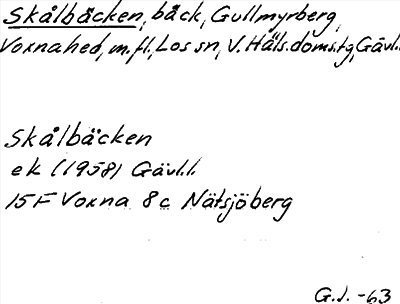 Skålbäcken, bäck, Gullmyrberg,
Voxnahed, m.fl., Los sn, V. Häls.doms.tg, Gävl.l.
Skålbäcken
ek (1958) Gävl.l.
15F Voxna 8c Nätsjöberg
G.J. -63